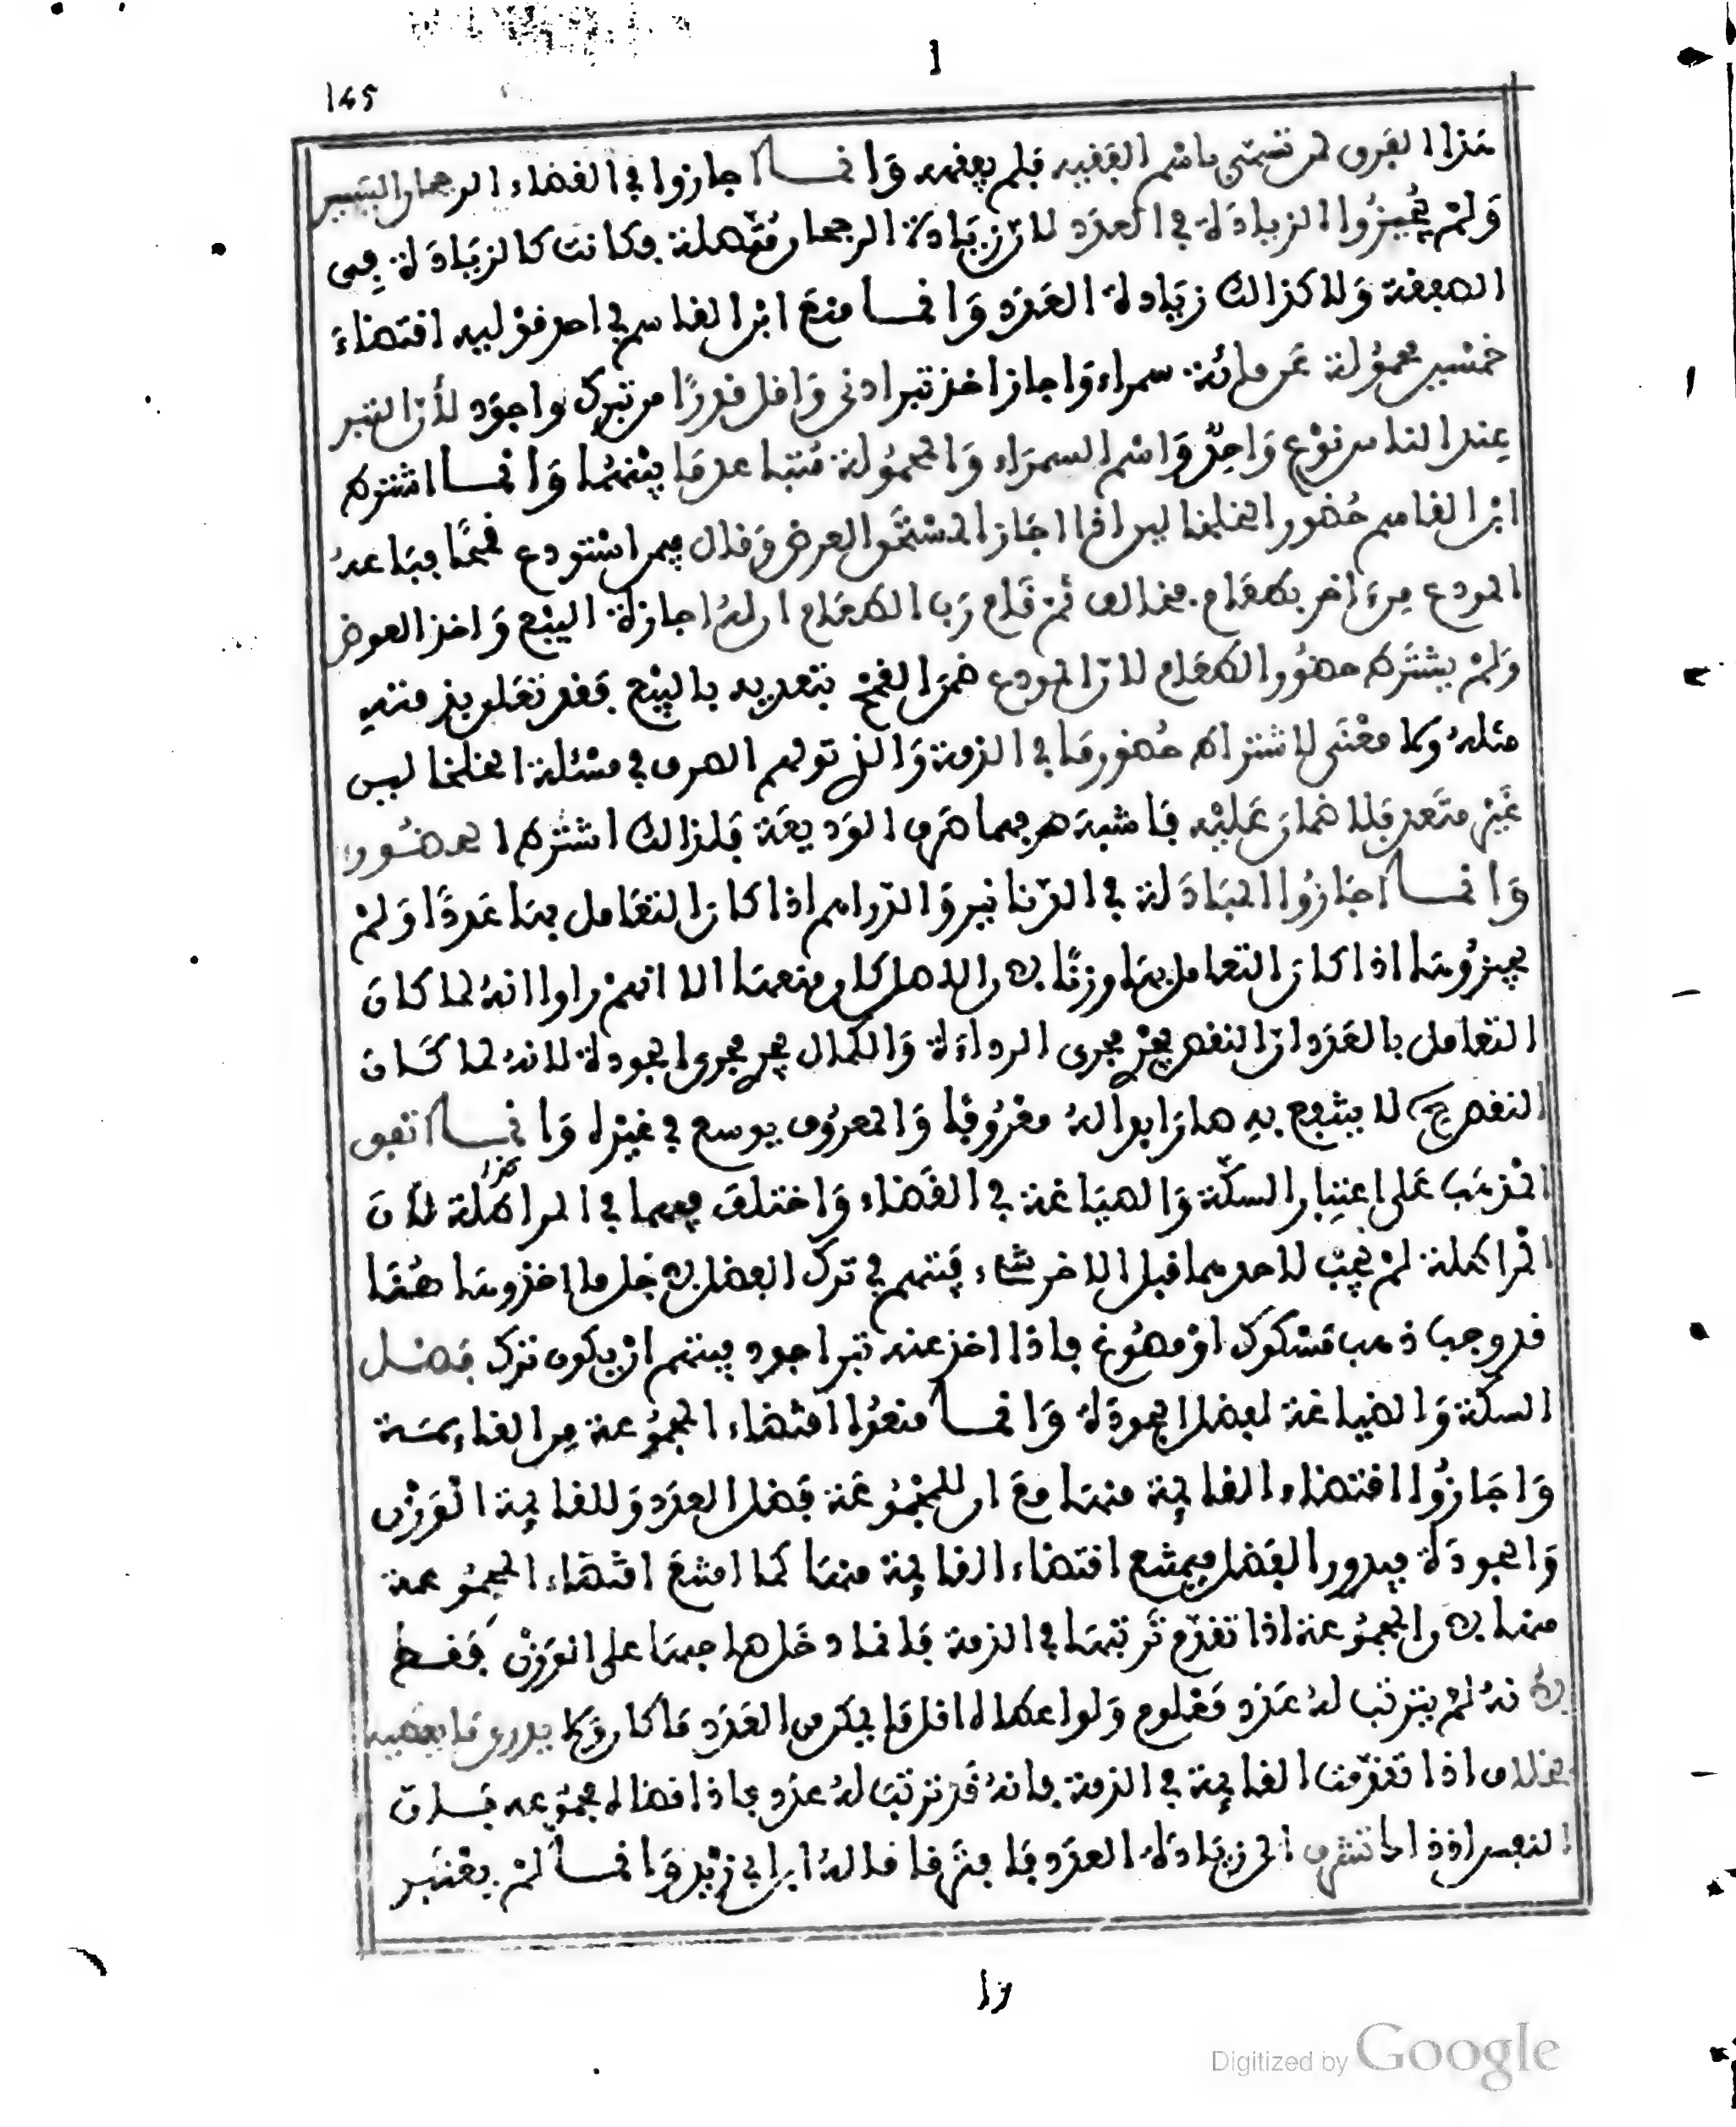 1
145
هذا الفرق لمن تسمى باسم الفقيه فلم يفهمه وانما اجازوا في القضاء الرجحان اليسير
ولم يجيزوا الزيادة في العدد لان زيادة الرجحان متصلة فكانت كالزيادة في
الصفة ولا كذالك زيادة العدد وانما منع ابن القاسم في احد قوليه اقتضاء
خمسين محمولة عن مائة سمراء واجاز اخذ تبر ادنى واقل قدرا من تبرك اجود لأن التبر
عند الناس نوع واحد واسم السمراء والمحمولة متباعد ما بينهما وانما اشترط
ابن القاسم حضور الخلخالين اذا اجاز المستحق العرض وقال فيمن استودع قمحا فباعه
المودع من اخر بطعام مخالف ثم قام رب الطعام ان له اجازة البيع واخذ العوض
ولم يشترط حضور الطعام لان المودع ضمن القمح بتعديه بالبيع فقد تعلق بذمته
مثله ولا معنى لاشتراط حضور ما في الذمة والذي تولى الصرف في مسئلة الخلخالين
غير متعد فلا ضمان عليه فاشبه صرفهما صرف الوديعة فلذالك اشترط الحضور
وانما اجازوا المبادلة في الدنانير والدراهم اذا كان التعامل بها عددا ولم
يجيزوها اذا كان التعامل بها وزنا لان الاصل كان منعها الا انهم راوا انه لما كان
التعامل بالعدد ان النقص يجري مجرى الرداءة والكمال يجري مجرى الجودة لانه لما كان
النقص لا ينتفع به صار ابداله معروفا والمعروف يوسع في غيره وانما اتفق
المذهب على اعتبار السكة والصياغة في القضاء واختلف فيهما في المراطلة لأن
المراطلة لم يجب لاحدهما قبل الاخر شيء فيتهم في ترك الفضل لاجل ما اخذ وها هنا
قد وجب ذهب مسكوك او مصوغ فاذا اخذ عنه تبرا جود فيتهم ان يكون ترك فضل
السكة والصياغة لفضل الجودة وانما منعوا اقتضاء المجموعة من القائمة
واجازوا اقتضاء القائمة منها مع ان للمجموعة فضل العدد وللقائمة الوزن
والجودة فيدور الفضل فيمتنع اقتضاء القائمة منها كما امتنع اقتضاء المجموعة
منها لان المجموعة اذا تقدم ترتبها في الذمة فانما دخل صاحبها على الوزن فقط
لانه لم يترتب له عدد معلوم ولو اعطاه اقل ما يمكن من العدد ما كان يدري ما يعطيه
بخلاف اذا تقدمت القائمة في الذمة فانه قد ترتب له عدد فاذا قضاه مجموعه فان
النفس اذ ذاك تتشوف الى زيادة العدد فافترقا قاله ابن ابي زيد وانما لم يعتبر
17
Digitized by Google